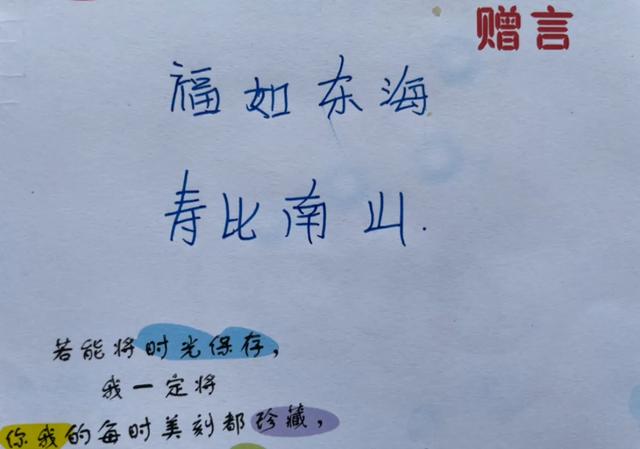 赠言
福如东海
寿比南山.
若能将时光保存，
我一定将
你我的每时美刻都珍藏，